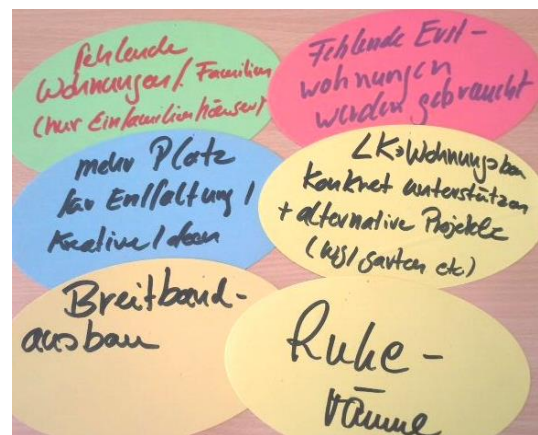 fehlende
Wohnungen f. Familien
(nur Einfamilienhäuser)
Fehlende Erst-
wohnungen
werden gebraucht
mehr Platz
für Entfaltung /
Kreative Ideen
LK > Wohnungsbau
konkret unterstützen
+ alternative Projekte
(WG / garten etc)
Breitband-
ausbau
Ruhe-
räume